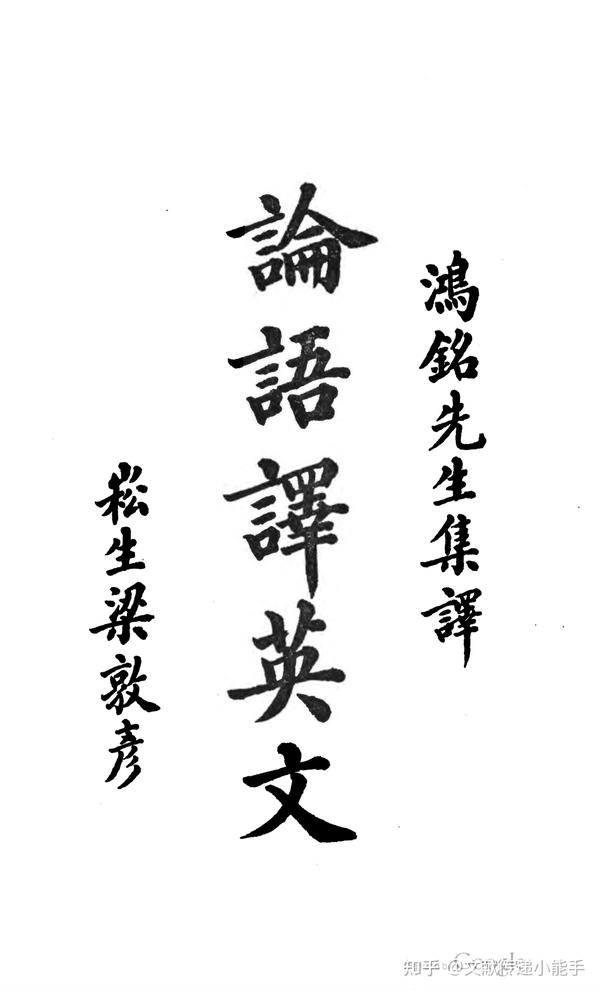 鴻銘先生集譯
論語譯英文
崧生梁敦彥
知乎 @文献传递小能手